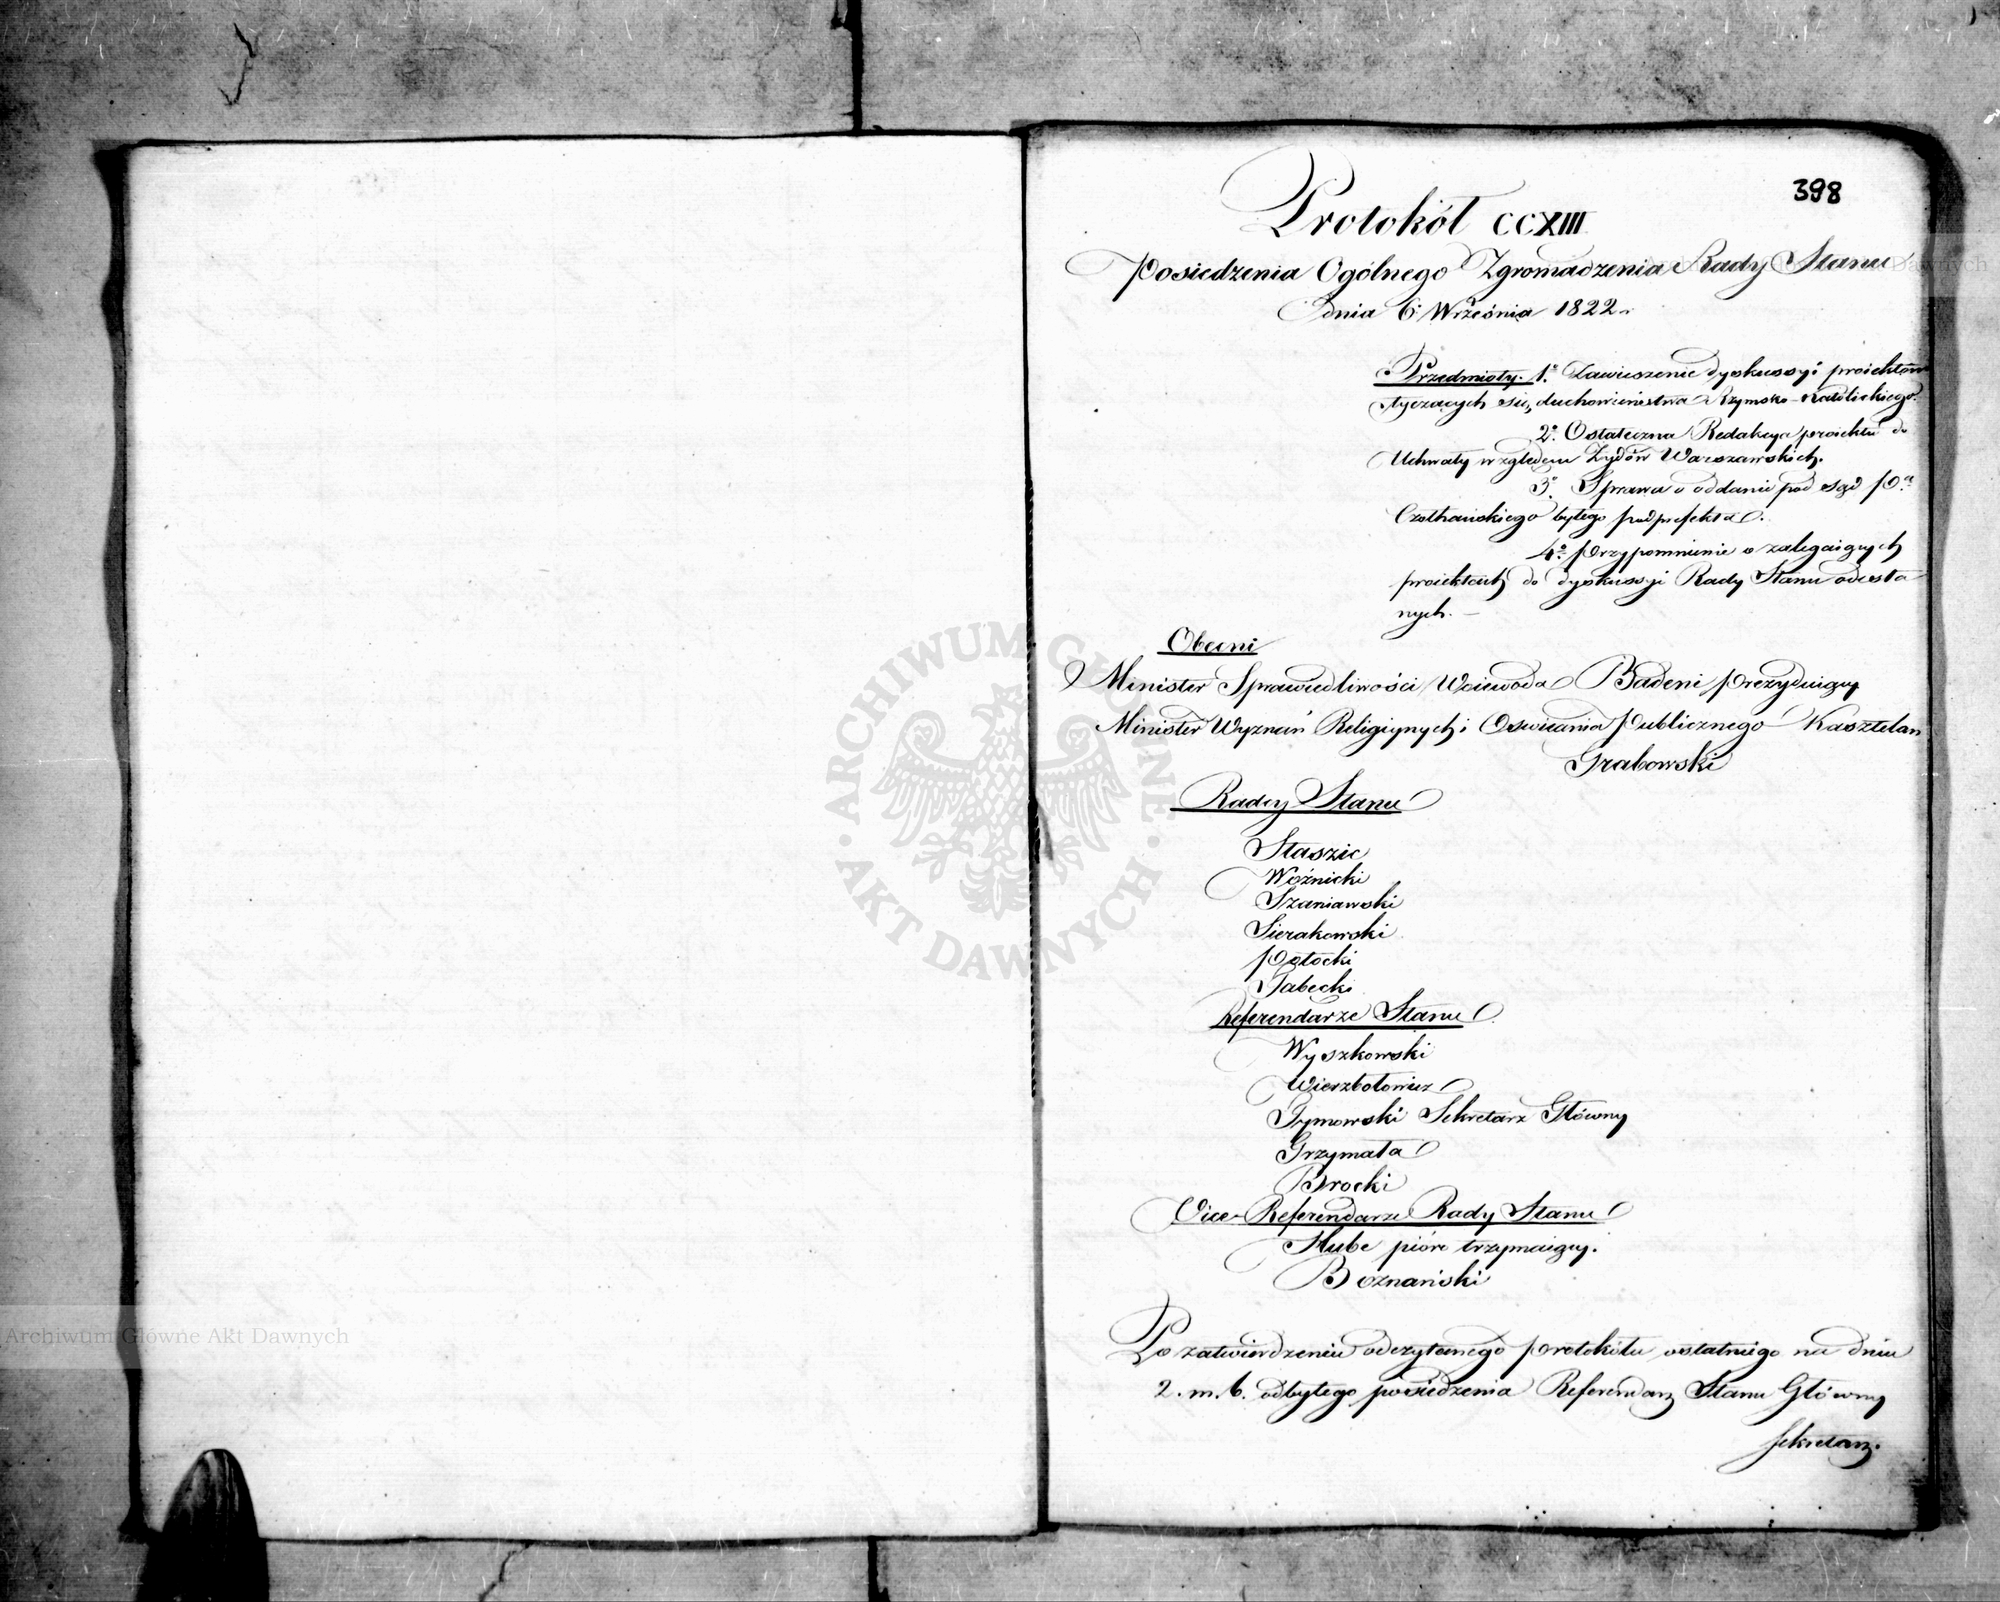 398
Protokół CCXIII
Posiedzenia Ogólnego Zgromadzenia Rady Stanu
dnia 6 Września 1822 r
Przedmioty. 1º Zawieszenie dyskussyi proiektów
tyczących się duchowieństwa Rzymsko-Katolickiego.
2º. Ostateczna Redakcya proiektu do
Uchwały względem Żydów Warszawskich.
3º. Sprawa o oddanie pod sąd P.ª
Czołhańskiego byłego podprefekta.
4º. Przypomnienie o zalegaiących
proiektach do dyskussyi Rady Stanu odesła
nych. —
Obecni
Minister Sprawiedliwości Woiewoda Badeni prezyduiący
Minister Wyznań Religiynych i Oświecenia Publicznego Kasztelan
Grabowski
Radcy Stanu
Staszic
Woźnicki
Szaniawski
Sierakowski
Potocki
Tabecki
Referendarze Stanu
Wyszkowski
Wierzbołowicz
Tymowski Sekretarz Główny
Grzymała
Brocki
Vice-Referendarze Rady Stanu
Hube pióro trzymaiący.
Boznański
Po zatwierdzeniu odczytanego protokółu ostatniego na dniu
2. m. b. odbytego posiedzenia Referendarz Stanu Główny
Sekretarz.
ARCHIWUM GŁÓWNE AKT DAWNYCH
Archiwum Główne Akt Dawnych